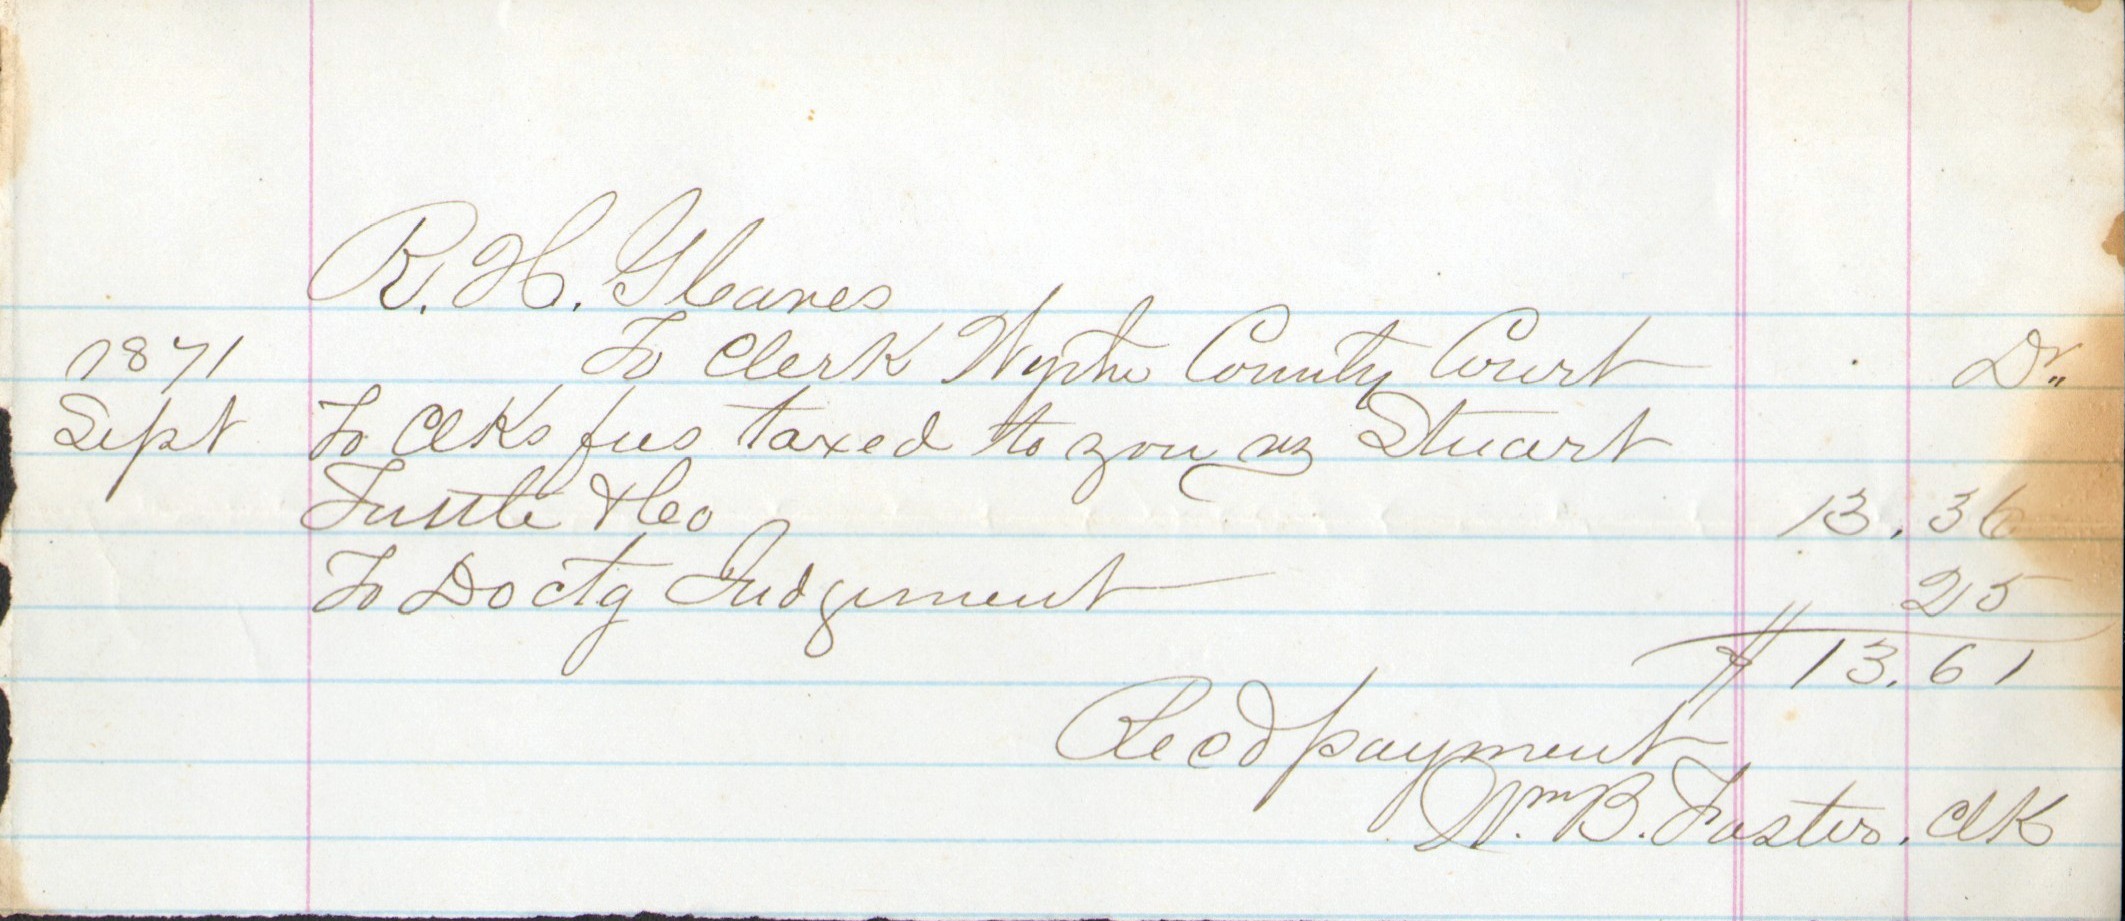 R. H. Gleaves
1871 To Clerk Wythe County Court Dr.
Sept To Clks fees taxed to you vs Stuart
Tuttle & Co 13.36
To Doctg Judgement 25
$13.61
Recd payment
Wm B. Foster. Clk